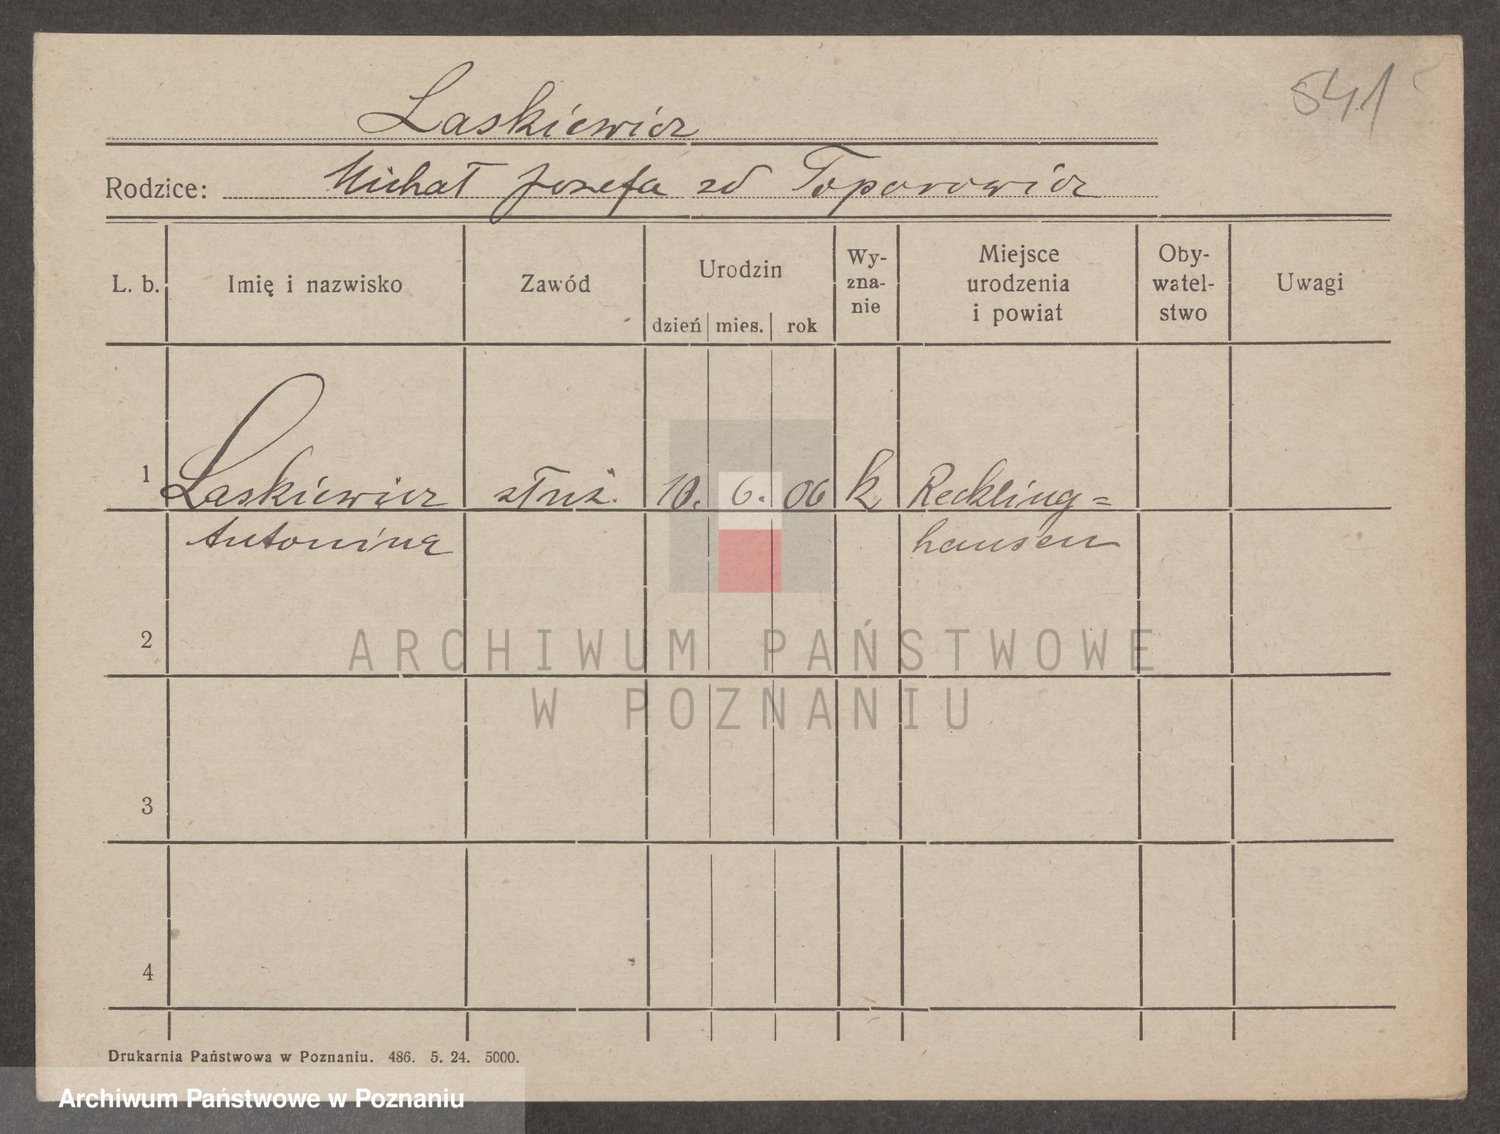 541
Laskiewicz
Rodzice: Michał Jozefa zd Toporowicz
L. b. Imię i nazwisko Zawód Urodzin dzień mies. rok Wy-znanie Miejsce urodzenia i powiat Oby-watel-stwo Uwagi
1 Laskiewicz służ. 10. 6. 06 k Reckling=
Antonina hausen
2
ARCHIWUM PAŃSTWOWE
W POZNANIU
3
4
Drukarnia Państwowa w Poznaniu. 486. 5. 24. 5000.
Archiwum Państwowe w Poznaniu